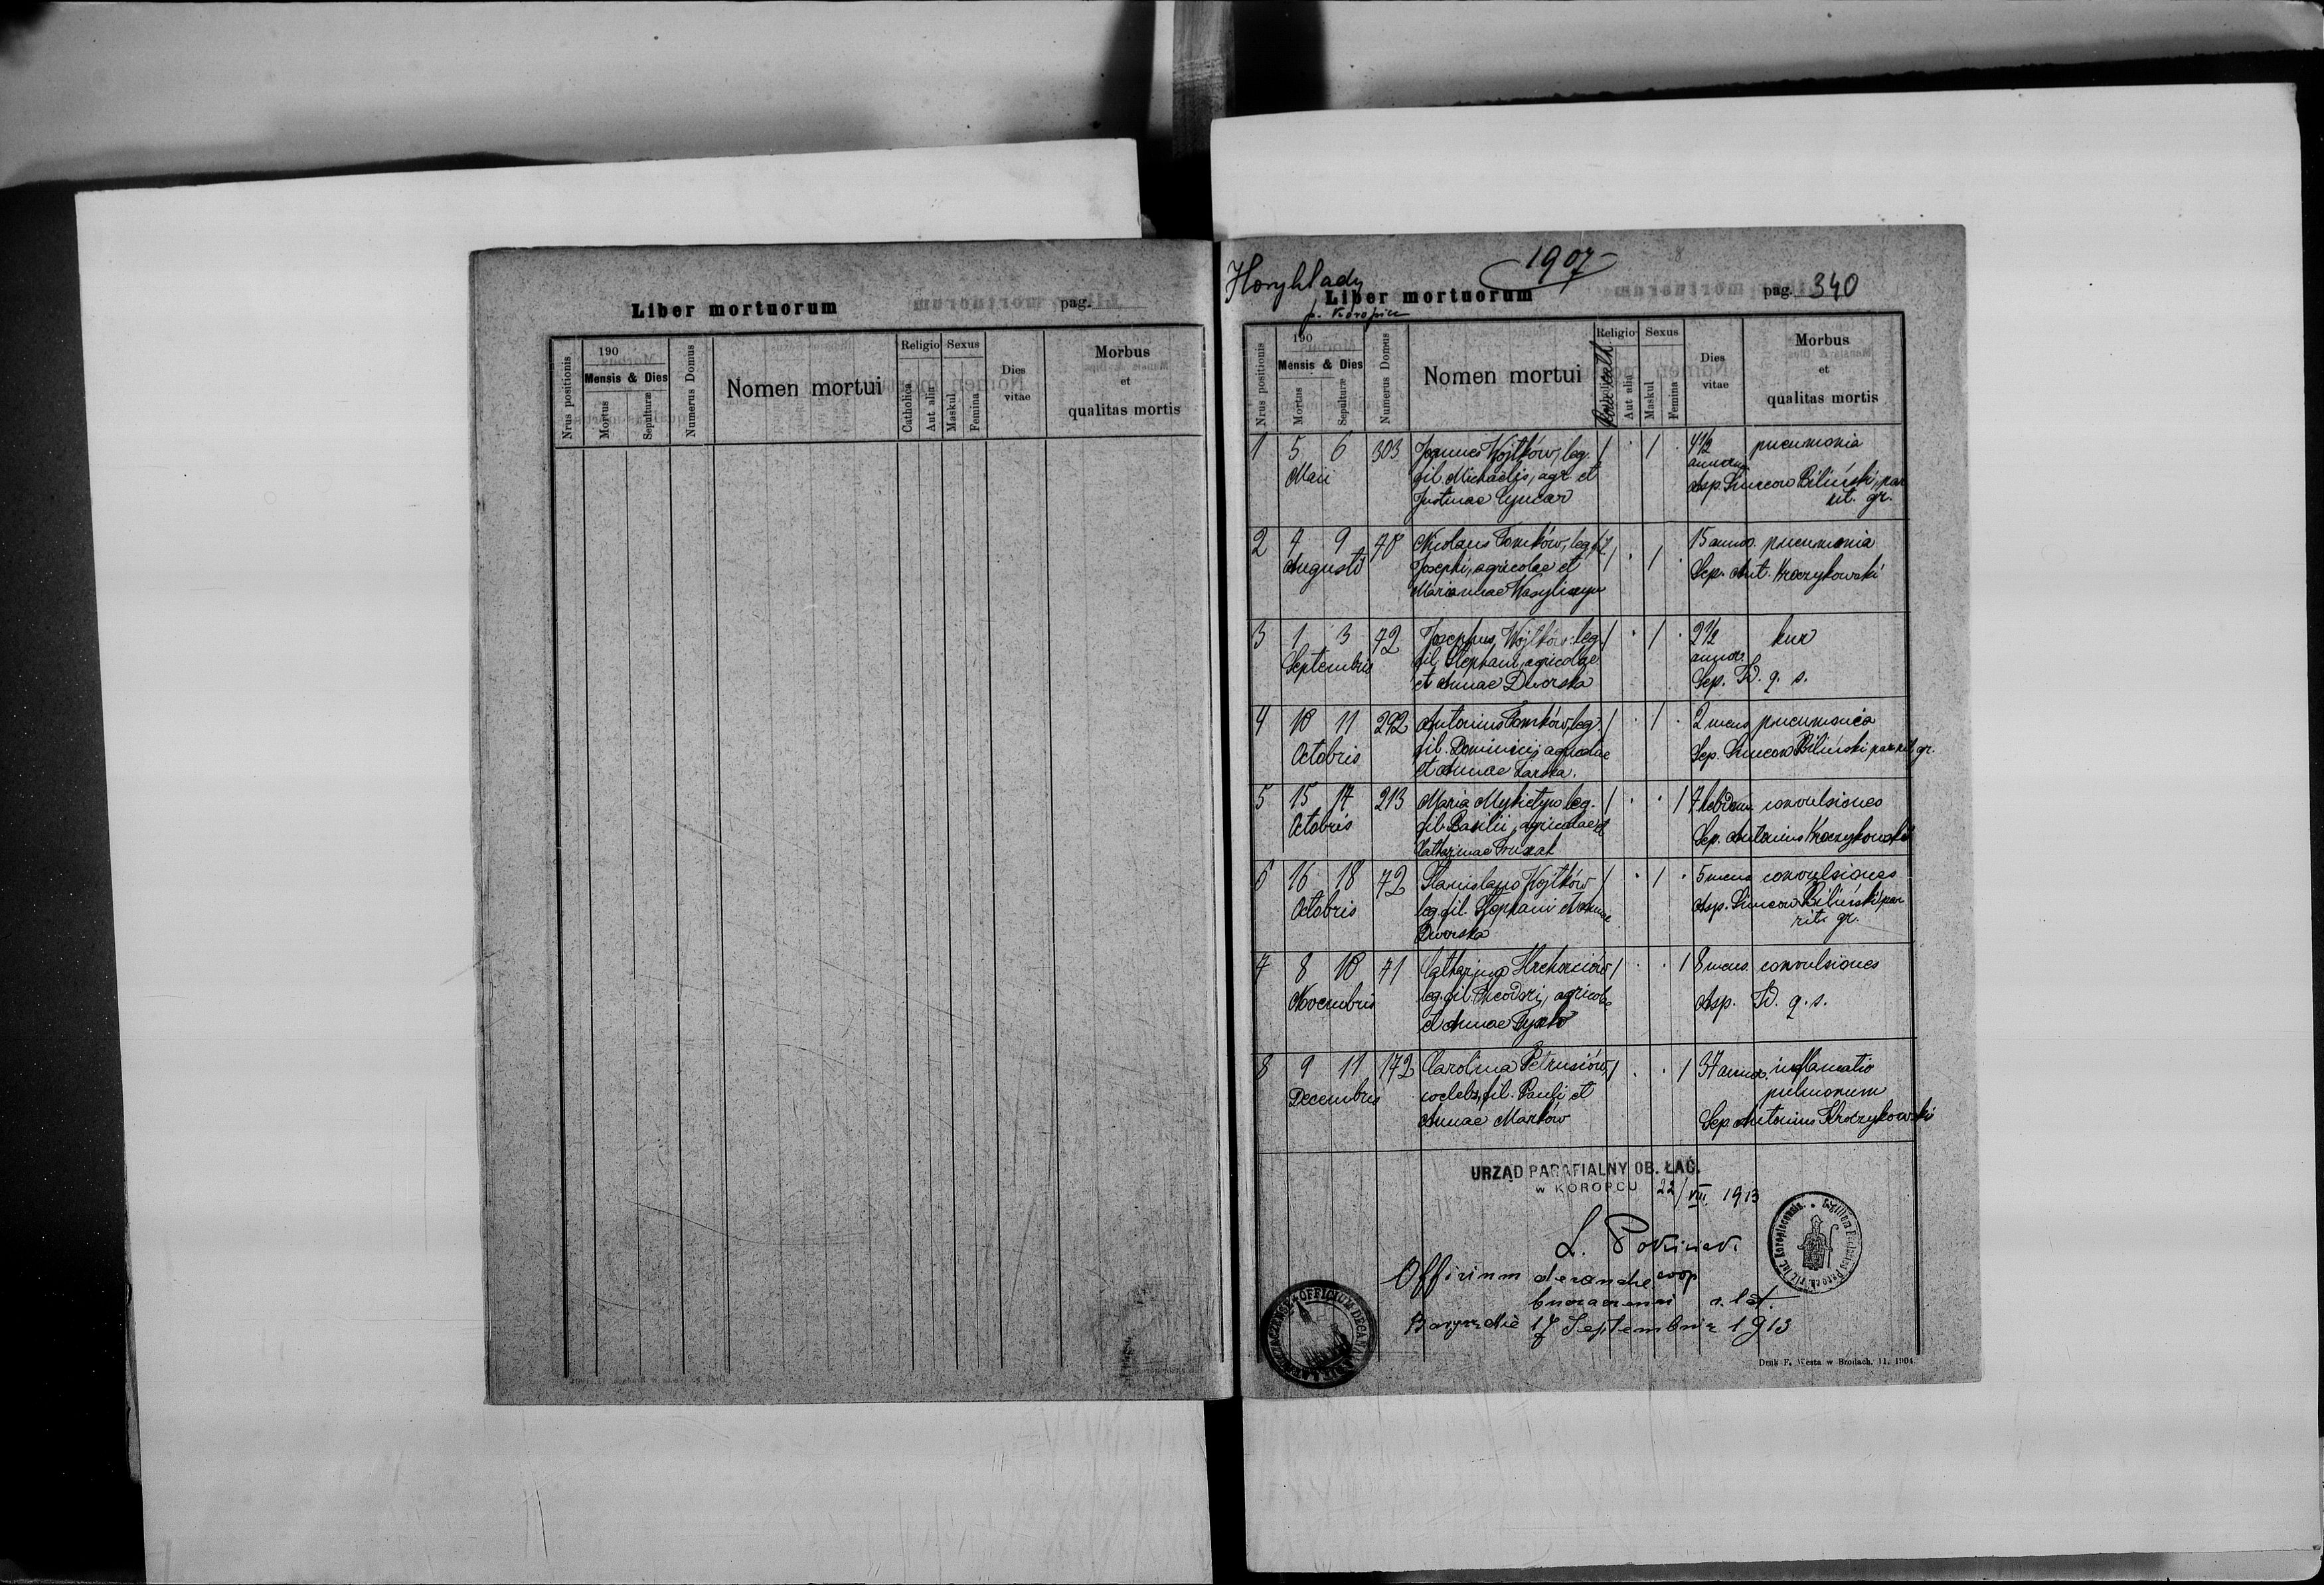 Liber mortuorum
pag.
Nrus positionis
190
Mensis & Dies
Mortus
Sepulturæ
Numerus Domus
Nomen mortui
Religio
Catholica
Aut alia
Sexus
Maskul
Femina
Dies
vitae
Morbus
et
qualitas mortis
1907
Horyhlady
Liber mortuorum
pag. 340
p. Koropiec
Nrus positionis
190
Mensis & Dies
Mortus
Sepulturæ
Numerus Domus
Nomen mortui
Religio
Aut alia
Sexus
Maskul
Femina
Dies
vitae
Morbus
et
qualitas mortis
1 5 6 303 Joannes Wojtków, leg. 1 . 1 . 4 1/2 pneumonia
Maii fil. Michaëlis, agr. et annor.
Asp. Simeon Biliński, par.
Justinae rit. gr.
2 7 9 48 Nicolaus Tomków, leg. fil. 1 . 1 . 15 annor. pneumonia
Augusti Josephi, agricolae et Sep. Ant. Kroczykowski
Mariannae Wasyliszyn
3 1 3 72 Josephus Wojtków leg. 1 . 1 . 2 1/2
Septembris fil. Stephani, agricolae annor.
et Annae Dworska Sep. Id. q. s.
4 10 11 292 Antonius Tomków, leg. 1 . 1 . 2 mens. pneumonia
Octobris fil. Dominici, agricolae Sep. Simeon Biliński par. rit. gr.
et Annae Tarska.
5 15 17 213 Maria Mykietyn leg. 1 . . 1 7 hebdom. convulsiones
Octobris fil. Basilii, agricolae et Sep. Antonius Kroczykowski
Catharinae
6 16 18 72 Stanislaus Wojtków 1 . 1 . 5 mens. convulsiones
Octobris leg. fil. Stephani et Annae Asp. Simeon Biliński par.
Dworska rit. gr.
7 8 10 71 Catharina Hrehorciów 1 . . 1 8 mens. convulsiones
Novembris leg. fil. Theodori, agricolae Asp. Id. q. s.
et Annae
8 9 11 172 Carolina Petrusiów, 1 . . 1 37 annor. inflamatio
Decembris coelebs, fil. Pauli et pulmonum
Annae Markow Sep. Antonius Kroczykowski
URZĄD PARAFIALNY OB. ŁAĆ.
w KOROPCU 22/VIII. 1913
L.
coop
Officium decanale
r. lat.
die 17 Septembris 1913
OFFICIUM DECANALE
Druk F. Westa w Brodach. 11. 1904.